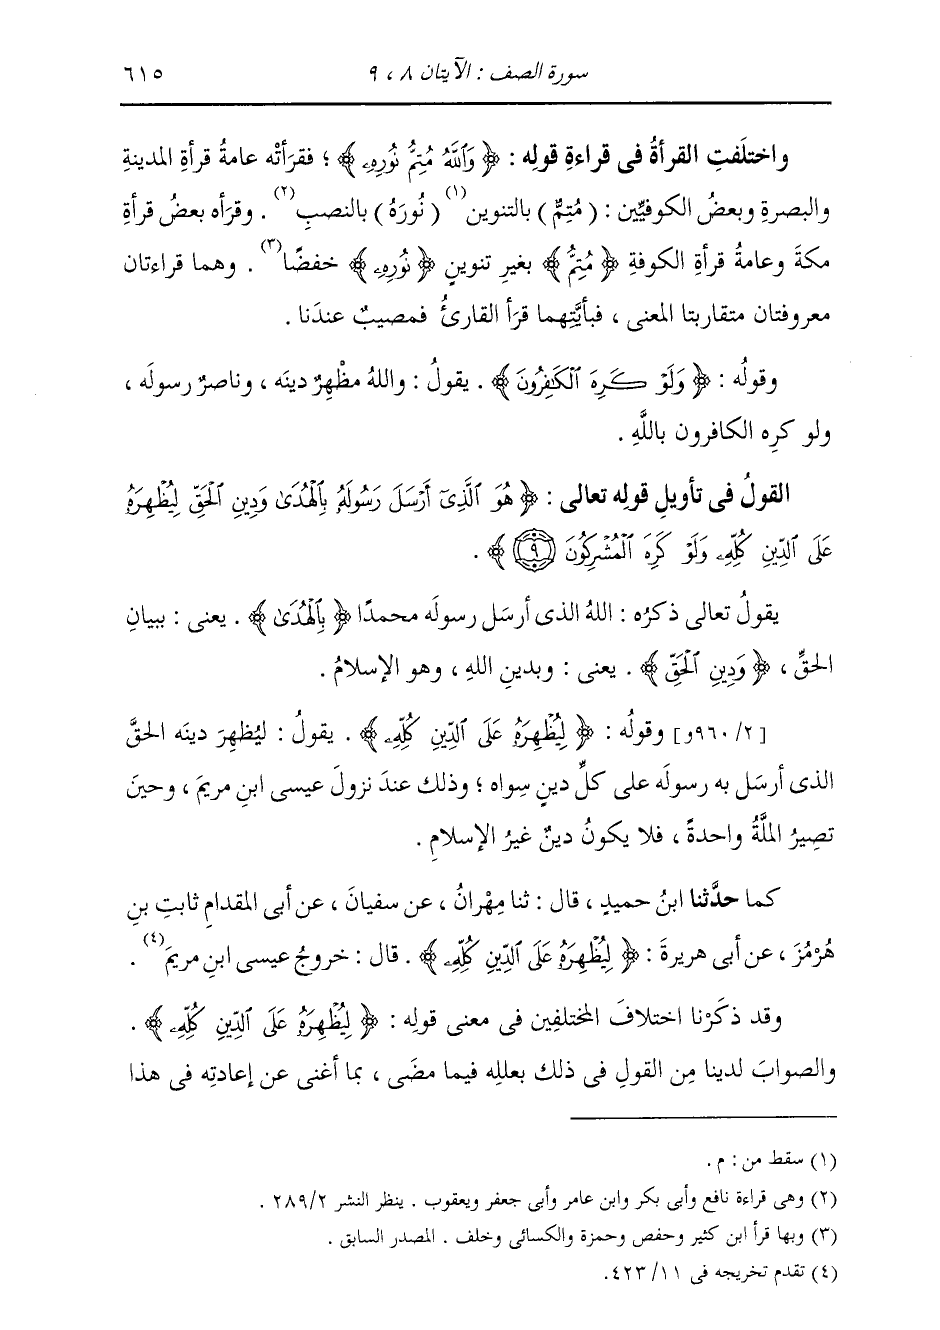 سورة الصف : الآيتان ٨ ، ٩ ٦١٥
واختلَفتِ القرأةُ فى قراءةِ قولِه : ﴿ وَٱللَّهُ مُتِمُّ نُورِهِۦ ﴾ ؛ فقرَأتْه عامةُ قرأةِ المدينةِ
والبصرةِ وبعضُ الكوفيِّين : ( مُتِمٌّ ) بالتنوينِ(١) ( نُورَهُ ) بالنصبِ(٢) . وقرَأه بعضُ قرأةِ
مكةَ وعامةُ قرأةِ الكوفةِ ﴿ مُتِمُّ ﴾ بغيرِ تنوينٍ ﴿ نُورِهِۦ ﴾ خفضًا(٣) . وهما قراءتان
معروفتان متقاربتا المعنى ، فبأيَّتِهما قرَأ القارئُ فمصيبٌ عندَنا .
وقولُه : ﴿ وَلَوْ كَرِهَ ٱلْكَٰفِرُونَ ﴾ . يقولُ : واللهُ مظْهِرٌ دينَه ، وناصرٌ رسولَه ،
ولو كرِه الكافرون باللَّهِ .
القولُ فى تأويلِ قولِه تعالى : ﴿ هُوَ ٱلَّذِىٓ أَرْسَلَ رَسُولَهُۥ بِٱلْهُدَىٰ وَدِينِ ٱلْحَقِّ لِيُظْهِرَهُۥ
عَلَى ٱلدِّينِ كُلِّهِۦ وَلَوْ كَرِهَ ٱلْمُشْرِكُونَ ٩ ﴾ .
يقولُ تعالى ذكرُه : اللهُ الذى أرسَل رسولَه محمدًا ﴿ بِٱلْهُدَىٰ ﴾ . يعنى : ببيانِ
الحقِّ ، ﴿ وَدِينِ ٱلْحَقِّ ﴾ . يعنى : وبدينِ اللهِ ، وهو الإسلامُ .
[٢/ ٩٦٠و] وقولُه : ﴿ لِيُظْهِرَهُۥ عَلَى ٱلدِّينِ كُلِّهِۦ ﴾ . يقولُ : ليُظهِرَ دينَه الحقَّ
الذى أرسَل به رسولَه على كلِّ دينٍ سِواه ؛ وذلك عندَ نزولِ عيسى ابنِ مريمَ ، وحينَ
تصِيرُ الملَّةُ واحدةً ، فلا يكونُ دينٌ غيرُ الإسلامِ .
كما حدَّثنا ابنُ حميدٍ ، قال : ثنا مِهْرانُ ، عن سفيانَ ، عن أبى المقدامِ ثابتِ بنِ
هُرْمُزَ ، عن أبى هريرةَ : ﴿ لِيُظْهِرَهُۥ عَلَى ٱلدِّينِ كُلِّهِۦ ﴾ . قال : خروجُ عيسى ابنِ مريمَ(٤) .
وقد ذكَرْنا اختلافَ المختلفِين فى معنى قولِه : ﴿ لِيُظْهِرَهُۥ عَلَى ٱلدِّينِ كُلِّهِۦ ﴾ .
والصوابَ لدينا مِن القولِ فى ذلك بعللِه فيما مضَى ، بما أغنى عن إعادتِه فى هذا
(١) سقط من : م .
(٢) وهى قراءة نافع وأبى بكر وابن عامر وأبى جعفر ويعقوب . ينظر النشر ٢/ ٢٨٩ .
(٣) وبها قرأ ابن كثير وحفص وحمزة والكسائى وخلف . المصدر السابق .
(٤) تقدم تخريجه فى ١١/ ٤٢٣.